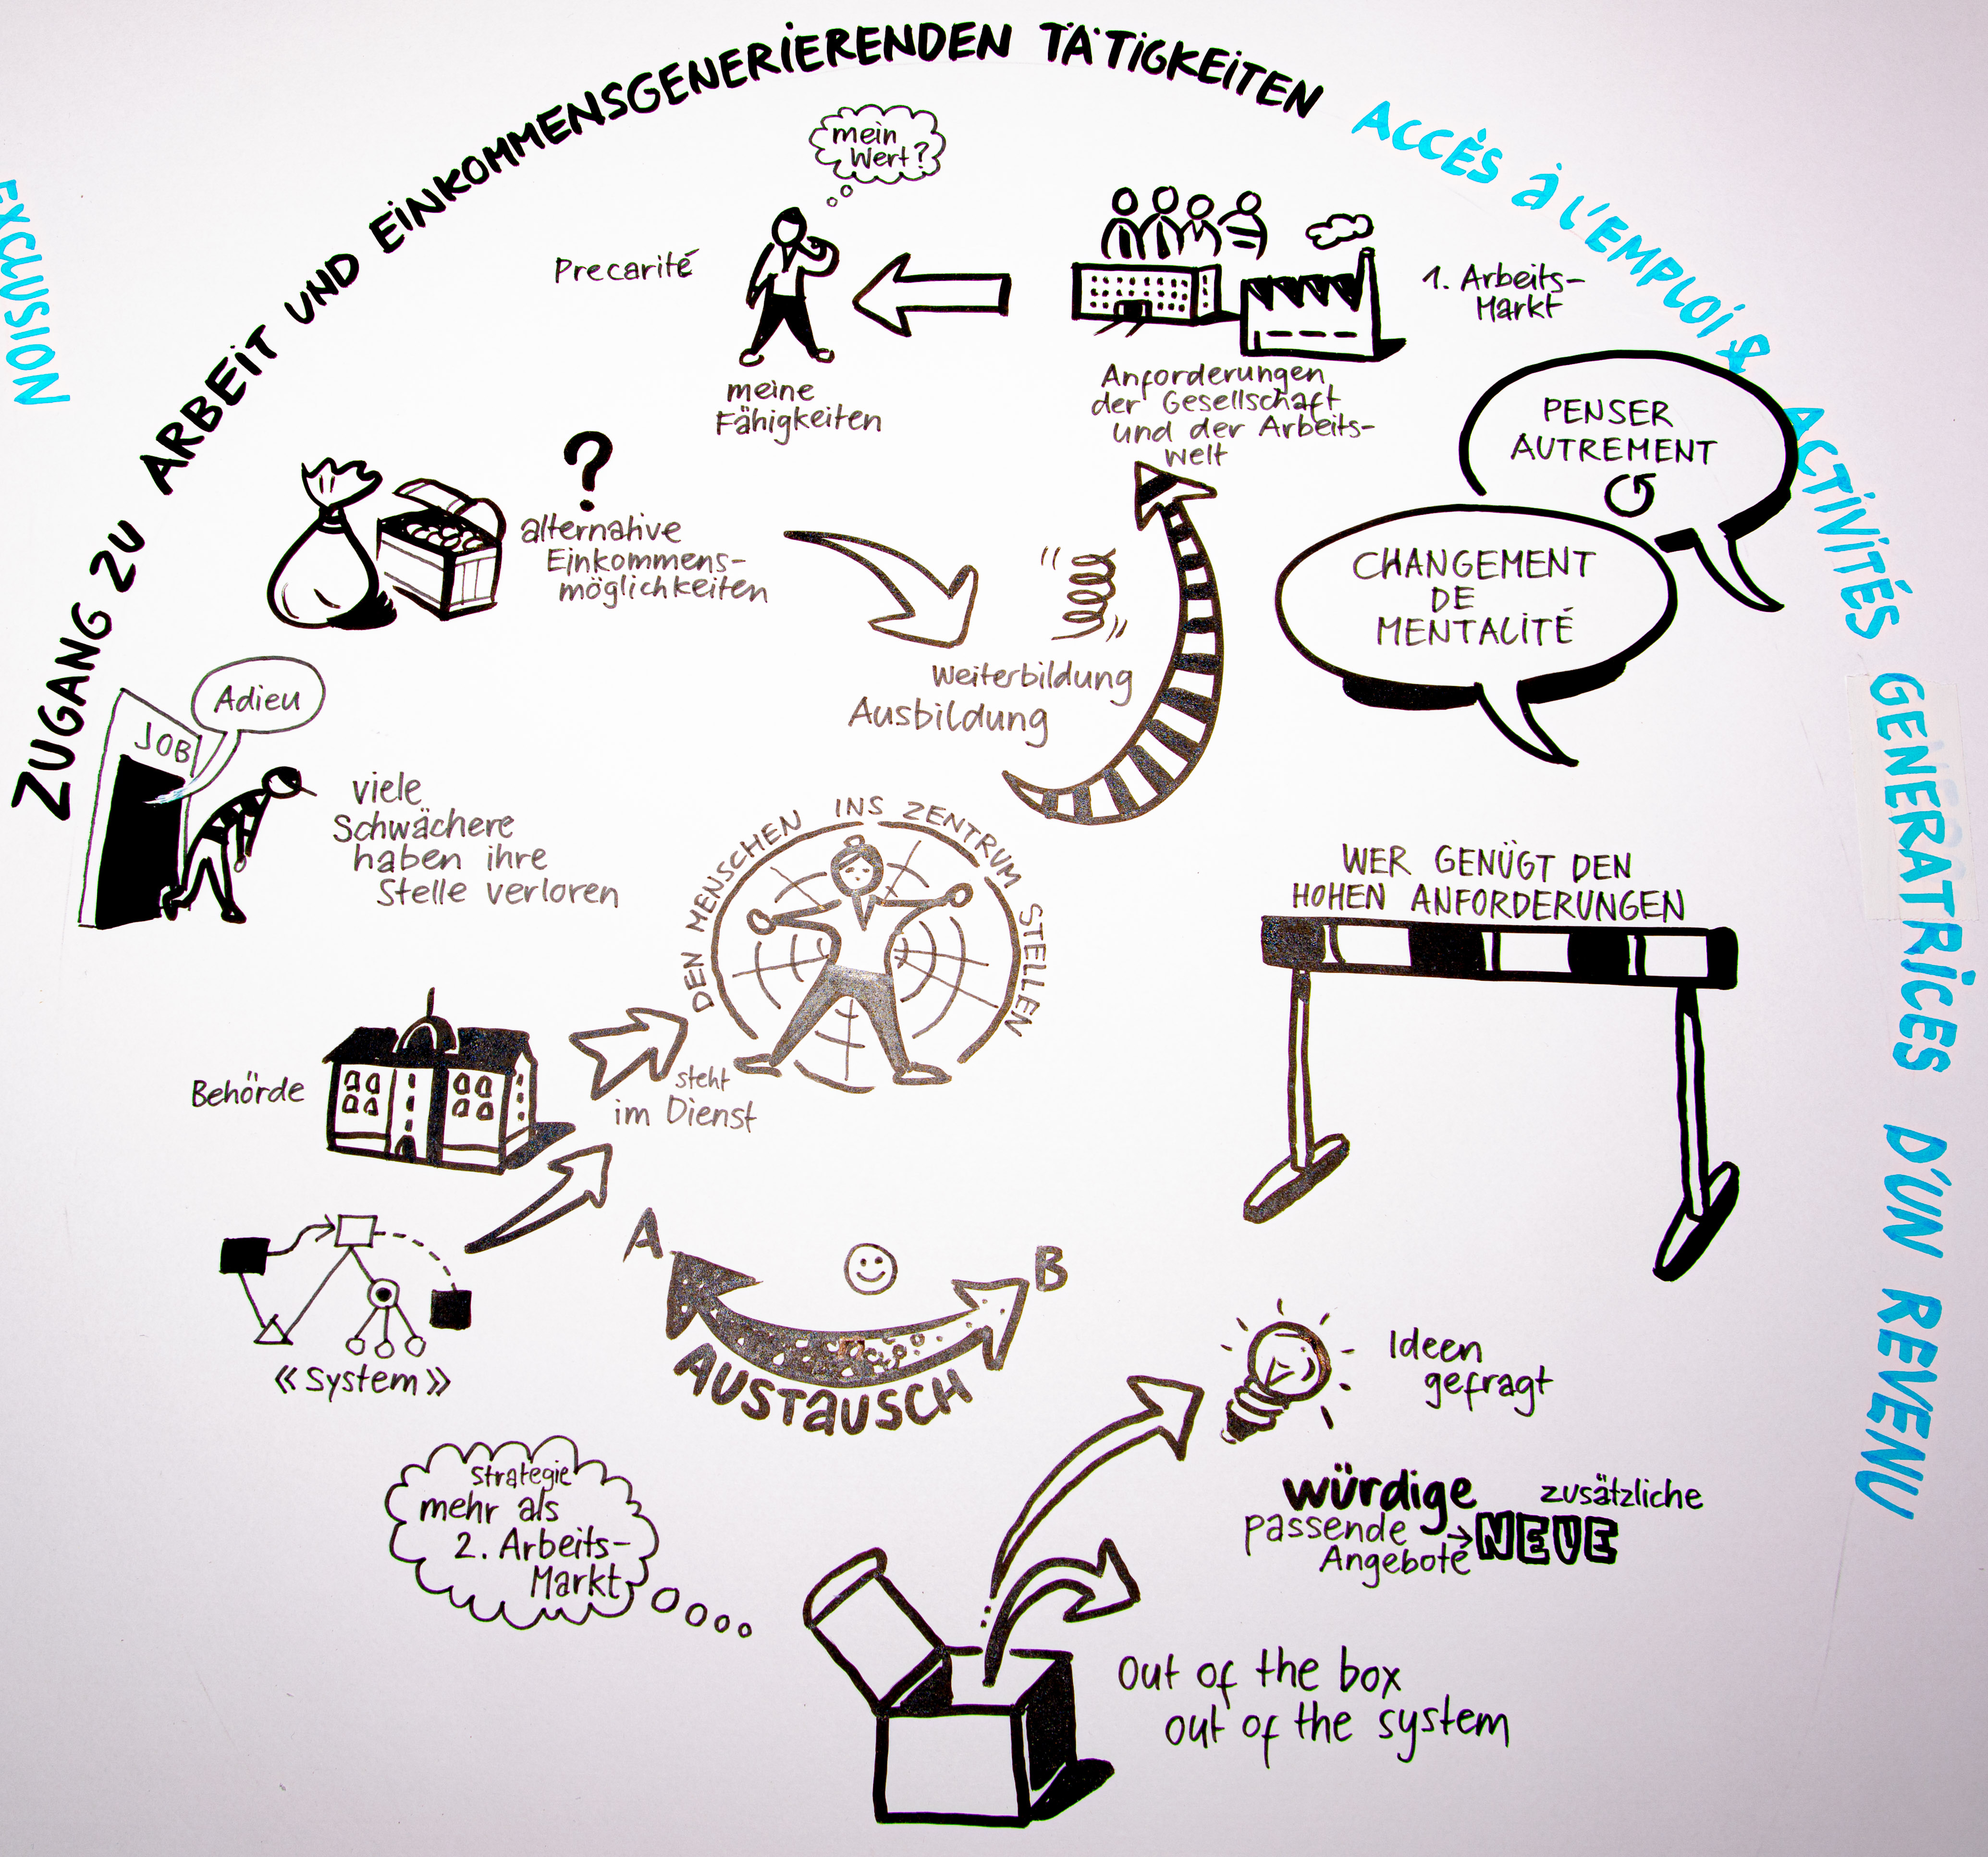 EXCLUSION
ZUGANG ZU ARBEIT UND EINKOMMENSGENERIERENDEN TÄTIGKEITEN
ACCÈS À L'EMPLOI & ACTIVITÉS GENERATRICES D'UN REVENU
mein
Wert?
Precarité
meine
Fähigkeiten
1. Arbeits-
Markt
Anforderungen
der Gesellschaft
und der Arbeits-
welt
PENSER
AUTREMENT
CHANGEMENT
DE
MENTALITÉ
?
alternative
Einkommens-
möglichkeiten
Weiterbildung
Ausbildung
JOB
Adieu
viele
Schwächere
haben ihre
Stelle verloren
DEN MENSCHEN INS ZENTRUM STELLEN
WER GENÜGT DEN
HOHEN ANFORDERUNGEN
Behörde
steht
im Dienst
«System»
A
B
AUSTAUSCH
Ideen
gefragt
Strategie
mehr als
2. Arbeits-
Markt
würdige
passende
Angebote
→ NEUE
zusätzliche
Out of the box
out of the system